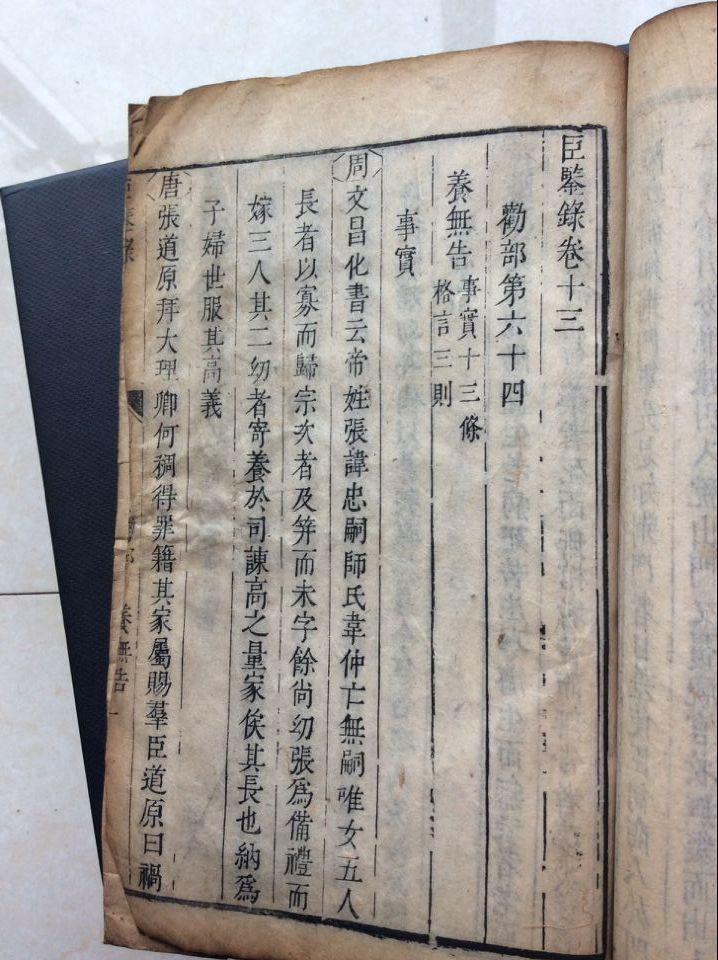 臣鑒錄卷十三
勸部第六十四
養無告 事實十三條
格言三則
事實
周 文昌化書云帝姓張諱忠嗣師氏韋仲亡無嗣唯女五人
長者以寡而歸宗次者及笄而未字餘尚幼張爲備禮而
嫁三人其二幼者寄養於司諫高之量家俟其長也納爲
子婦世服其高義
唐張道原拜大理卿何稠得罪籍其家屬賜羣臣道原曰禍
養無告 一